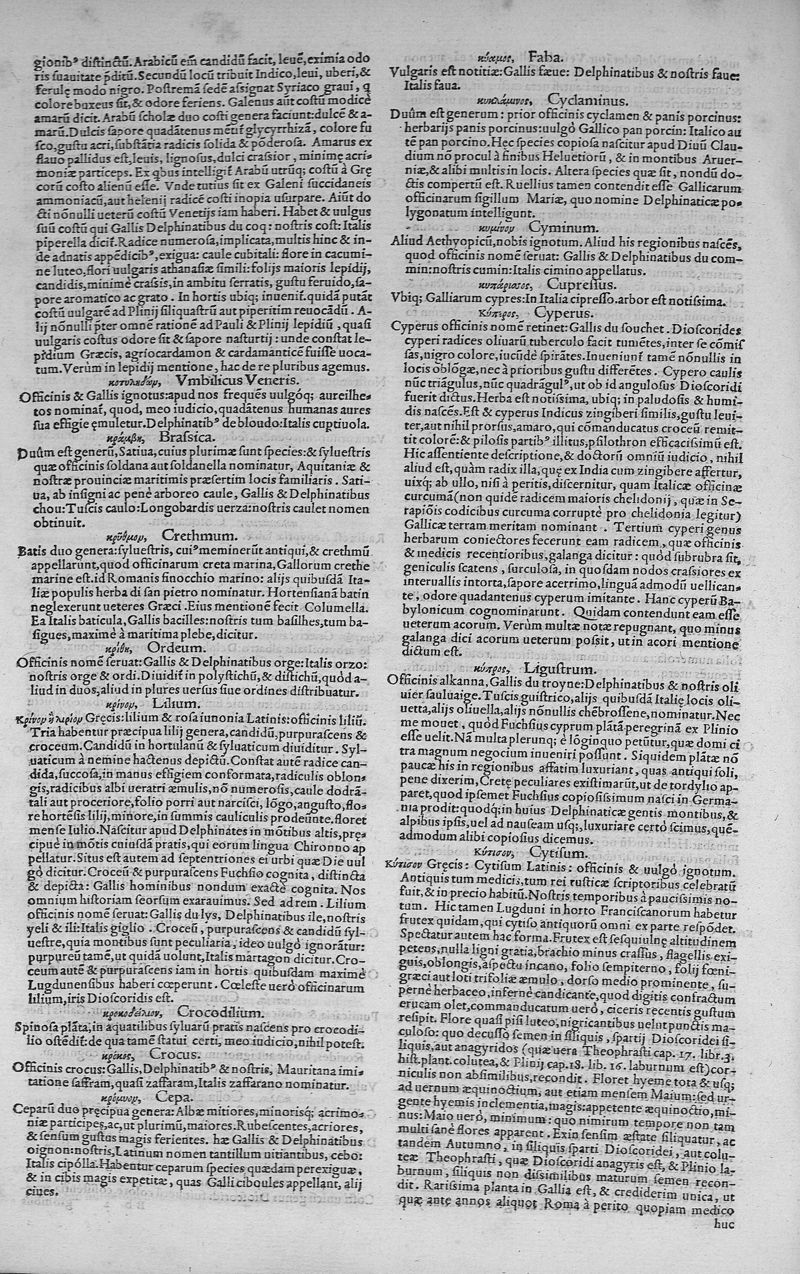 gionibꝰ distinctũ. Arabicũ em̃ candidũ facit, leuẽ, eximia odo
ris suauitate p̃ditũ. Secundũ locũ tribuit Indico, leui, uberi, &
ferulę modo nigro. Postremã sedẽ assignat Syriaco graui, q̃
colore buxeus sit, & odore feriens. Galenus aũt costũ modicè
amarũ dicit. Arabũ scholæ duo costi genera faciunt: dulcẽ & a-
marũ. Dulcis sapore quadãtenus mẽtit̃ glycyrrhizã, colore fu
sco, gustu acri, substãtia radicis solida & põderosa. Amarus ex
flauo pallidus est, leuis, lignosus, dulci crassior, minimę acri-
moniæ particeps. Ex qbus intelligit̃ Arabũ utrũq; costũ à Grę
corũ costo alienũ esse. Vnde tutius sit ex Galeni succidaneis
ammoniacũ, aut helenij radicẽ costi inopia usurpare. Aiũt do
cti nõnulli ueterũ costũ Venetijs iam haberi. Habet & uulgus
suũ costũ qui Gallis Delphinatibus du coq: nostris cost: Italis
piperella dicit̃. Radice numerosa, implicata, multis hinc & in-
de adnatis appẽdicibꝰ, exigua: caule cubitali: flore in cacumi-
ne luteo, flori uulgaris athanasiæ simili: folijs maioris lepidij,
candidis, minimè crassis, in ambitu serratis, gustu feruido, sa-
pore aromatico ac grato. In hortis ubiq; inuenit̃. quidã putãt
costũ uulgarẽ ad Plinij siliquastrũ aut piperitim reuocãdũ. A-
lij nõnulli p̃ter omnẽ rationẽ ad Pauli & Plinij lepidiũ, quasi
uulgaris costus odore sit & sapore nasturtij: unde constat le-
pidium Græcis, agriocardamon & cardamanticẽ fuisse uoca-
tum. Verùm in lepidij mentione, hac de re pluribus agemus.
κοτυληδὼν, Vmbilicus Veneris.
Officinis & Gallis ignotus: apud nos frequẽs uulgóq; aureilhe-
tos nominat̃, quod, meo iudicio, quadãtenus humanas aures
sua effigie ęmuletur. Delphinatibꝰ de bloudo: Italis cuptiuola.
κράμβη, Brassica.
Duûm est generũ, Satiua, cuius plurimæ sunt species: & syluestris
quæ officinis soldana aut soldanella nominatur, Aquitaniæ &
nostræ prouinciæ maritimis præsertim locis familiaris. Sati-
ua, ab insigni ac penè arboreo caule, Gallis & Delphinatibus
chou: Tuscis caulo: Longobardis uerza: nostris caulet nomen
obtinuit.
κρῆθμον, Crethmum.
Batis duo genera: syluestris, cuiꝰ meminerũt antiqui, & crethmũ
appellarunt, quod officinarum creta marina, Gallorum crethe
marine est. id Romanis finocchio marino: alijs quibusdã Ita-
liæ populis herba di san pietro nominatur. Hortensianã batin
neglexerunt ueteres Græci. Eius mentionẽ fecit Columella.
Ea Italis baticula, Gallis bacilles: nostris tum basilhes, tum ba-
sigues, maximè à maritima plebe, dicitur.
κριθὴ, Ordeum.
Officinis nomẽ seruat: Gallis & Delphinatibus orge: Italis orzo:
nostris orge & ordi. Diuidit̃ in polystichũ, & distichũ, quòd a-
liud in duos, aliud in plures uersus siue ordines distribuatur.
κρίνον, Lilium.
κρίνον ἢ λείριον Gręcis: lilium & rosa iunonia Latinis: officinis liliũ.
Tria habentur præcipua lilij genera, candidũ, purpurascens &
croceum. Candidũ in hortulanũ & syluaticum diuiditur. Syl-
uaticum à nemine hactenus depictũ. Constat autẽ radice can-
dida, succosa, in manus effigiem conformata, radiculis oblon-
gis, radicibus albi ueratri æmulis, nõ numerosis, caule dodrã-
tali aut proceriore, folio porri aut narcisci, lõgo, angusto, flo-
re hortẽsis lilij, minore, in summis cauliculis prodeunte. floret
mense Iulio. Nascitur apud Delphinates in mõtibus altis, pręs
cipuè in mõtis cuiusdã pratis, qui eorum lingua Chironno ap
pellatur. Situs est autem ad septentriones ei urbi quæ Die uul
gò dicitur. Croceũ & purpurascens Fuchsio cognita, distincta
& depicta: Gallis hominibus nondum exactè cognita. Nos
omnium historiam seorsum exarauimus. Sed ad rem. Lilium
officinis nomẽ seruat: Gallis du lys, Delphinatibus ile, nostris
yeli & ili: Italis giglio. Croceũ, purpurascens & candidũ syl-
uestre, quia montibus sunt peculiaria, ideo uulgò ignorãtur:
purpureũ tamẽ, ut quidã uolunt, Italis martagon dicitur. Cro-
ceum autẽ & purpurascens iam in hortis quibusdam maximè
Lugdunensibus haberi cœperunt. Cœleste uerò officinarum
lilium, iris Dioscoridis est.
κροκοδείλιον, Crocodilium.
Spinosa plãta, in aquatilibus syluarũ pratis nascens pro crocodi-
lio ostẽdit̃: de qua tamẽ statui certi, meo iudicio, nihil potest.
κρόκος, Crocus.
Officinis crocus: Gallis, Delphinatibꝰ & nostris, Mauritana imi-
tatione saffram, quasi zaffaram, Italis zaffarano nominatur.
κρόμυον, Cepa.
Ceparũ duo pręcipua genera: Albæ mitiores, minorisq; acrimo-
niæ participes, ac, ut plurimũ, maiores. Rubescentes, acriores,
& sensum gustus magis ferientes. hæ Gallis & Delphinatibus
oignon: nostris, Latinum nomen tantillum uitiantibus, cebo:
Italis cipolla. Habentur ceparum species quædam perexiguæ,
& in cibis magis expetitæ, quas Galli ciboules appellant, alij
ciues.
κύαμος, Faba.
Vulgaris est notitiæ: Gallis fæue: Delphinatibus & nostris faue:
Italis faua.
κυκλάμινος, Cyclaminus.
Duûm est generum: prior officinis cyclamen & panis porcinus:
herbarijs panis porcinus: uulgò Gallico pan porcin: Italico au
tẽ pan porcino. Hęc species copiosa nascitur apud Diuũ Clau-
dium nõ procul à finibus Heluetiorũ, & in montibus Aruer-
niæ, & alibi multis in locis. Altera species quæ sit, nondũ do-
ctis compertũ est. Ruellius tamen contendit esse Gallicarum
officinarum sigillum Mariæ, quo nomine Delphinaticæ po-
lygonatum intelligunt.
κυμίνον Cyminum.
Aliud Aethyopicũ, nobis ignotum. Aliud his regionibus nascẽs,
quod officinis nomẽ seruat: Gallis & Delphinatibus du com-
min: nostris cumin: Italis cimino appellatus.
κυπάρισσος, Cupressus.
Vbiq; Galliarum cypres: In Italia cipresso. arbor est notissima.
Κύπειρος, Cyperus.
Cyperus officinis nomẽ retinet: Gallis du souchet. Dioscorides
cyperi radices oliuarũ tuberculo facit tumẽtes, inter se cõmis
sas, nigro colore, iucũdè spirãtes. Inueniunt̃ tamẽ nõnullis in
locis oblõgæ, nec à prioribus gustu differẽtes. Cypero caulis
nũc triãgulus, nũc quadrãgulꝰ, ut ob id angulosus Dioscoridi
fuerit dictus. Herba est notissima, ubiq; in paludosis & humi-
dis nascẽs. Est & cyperus Indicus zingiberi similis, gustu leui-
ter, aut nihil prorsus, amaro, qui cõmanducatus croceũ remit-
tit colorẽ: & pilosis partibꝰ illitus, psilothron efficacissimũ est.
Hic assentiente descriptione, & doctorũ omniũ iudicio, nihil
aliud est, quàm radix illa, quę ex India cum zingibere affertur,
uixq; ab ullo, nisi à peritis, discernitur, quam Italicæ officinæ
curcumã (non quidẽ radicem maioris chelidonij, quæ in Se-
rapiõis codicibus curcuma corruptè pro chelidonia legitur)
Gallicæ terram meritam nominant. Tertium cyperi genus
herbarum coniectores fecerunt eam radicem, quæ officinis
& medicis recentioribus, galanga dicitur: quòd subrubra sit,
geniculis scatens, surculosa, in quosdam nodos crassiores ex
interuallis intorta, sapore acerrimo, linguã admodũ uellican-
te, odore quadantenus cyperum imitante. Hanc cyperũ Ba-
bylonicum cognominarunt. Quidam contendunt eam esse
ueterum acorum. Verùm multæ notæ repugnant, quo minus
galanga dici acorum ueterum possit, ut in acori mentione
dictum est.
κύπρος, Ligustrum.
Officinis alkanna, Gallis du troyne: Delphinatibus & nostris oli
uier sauluaige. Tuscis guistrico, alijs quibusdã Italię locis oli-
uetta, alijs oliuella, alijs nõnullis chẽbrossene, nominatur. Nec
me mouet, quòd Fuchsius cyprum plãtã peregrinã ex Plinio
esse uelit. Nã multa plerunq; è lõginquo petũtur, quæ domi ci
tra magnum negocium inueniri possunt. Siquidem plãtæ nõ
paucæ his in regionibus affatim luxuriant, quas antiqui soli,
pene dixerim, Cretę peculiares existimarũt, ut de tordylio ap-
paret, quod ipsemet Fuchsius copiosissimum nasci in Germa-
nia prodit: quodq; in huius Delphinaticæ gentis montibus, &
alpibus ipsis, uel ad nauseam usq;, luxuriare certò scimus, quẽ-
admodum alibi copiosius dicemus.
Κύτισον, Cytisum.
Κύτισον Gręcis: Cytisum Latinis: officinis & uulgò ignotum.
Antiquis tum medicis, tum rei rusticæ scriptoribus celebratũ
fuit, & in precio habitũ. Nostris temporibus à paucissimis no-
tum. Hic tamen Lugduni in horto Franciscanorum habetur
frutex quidam, qui cytiso antiquorũ omni ex parte respõdet.
Spectatur autem hac forma. Frutex est sesquiulnę altitudinem
petens, nulla ligni gratia, brachio minus crassus, flagellis exi-
guis, oblongis, aspectu incano, folio sempiterno, folij fœni-
græci aut loti trifoliæ æmulo, dorso medio prominente, su-
pernè herbaceo, infernè candicante, quod digitis confractum
erucam olet, commanducatum uerò, ciceris recentis gustum
resipit. Flore quasi pisi luteo, nigricantibus uelut punctis ma-
culoso: quo decusso semen in siliquis, spartij Dioscoridei si-
liquis, aut anagyridos (quæ uera Theophrasti cap. 17. libr. 3.
hist. plant. colutea, & Plinij cap. 18. lib. 16. laburnum est) cor-
niculis non absimilibus, recondit. Floret hyeme tota & usq;
ad uernum æquinoctium, aut etiam mensem Maium: sed ur-
gente hyemis inclementia, magis: appetente æquinoctio, mi-
nus: Maio uerò, minimum: quo nimirum tempore non tam
multi sanè flores apparent. Exin sensim æstate siliquatur, ac
tandem Autumno, in siliquis sparti Dioscoridei, aut colu-
teæ Theophrasti, quæ Dioscoridi anagyris est, & Plinio la-
burnum, siliquis non dissimilibus maturum semen recon-
dit. Rarissima planta in Gallia est, & crediderim unica, ut
quæ ante annos aliquot Roma à perito quopiam medico
huc